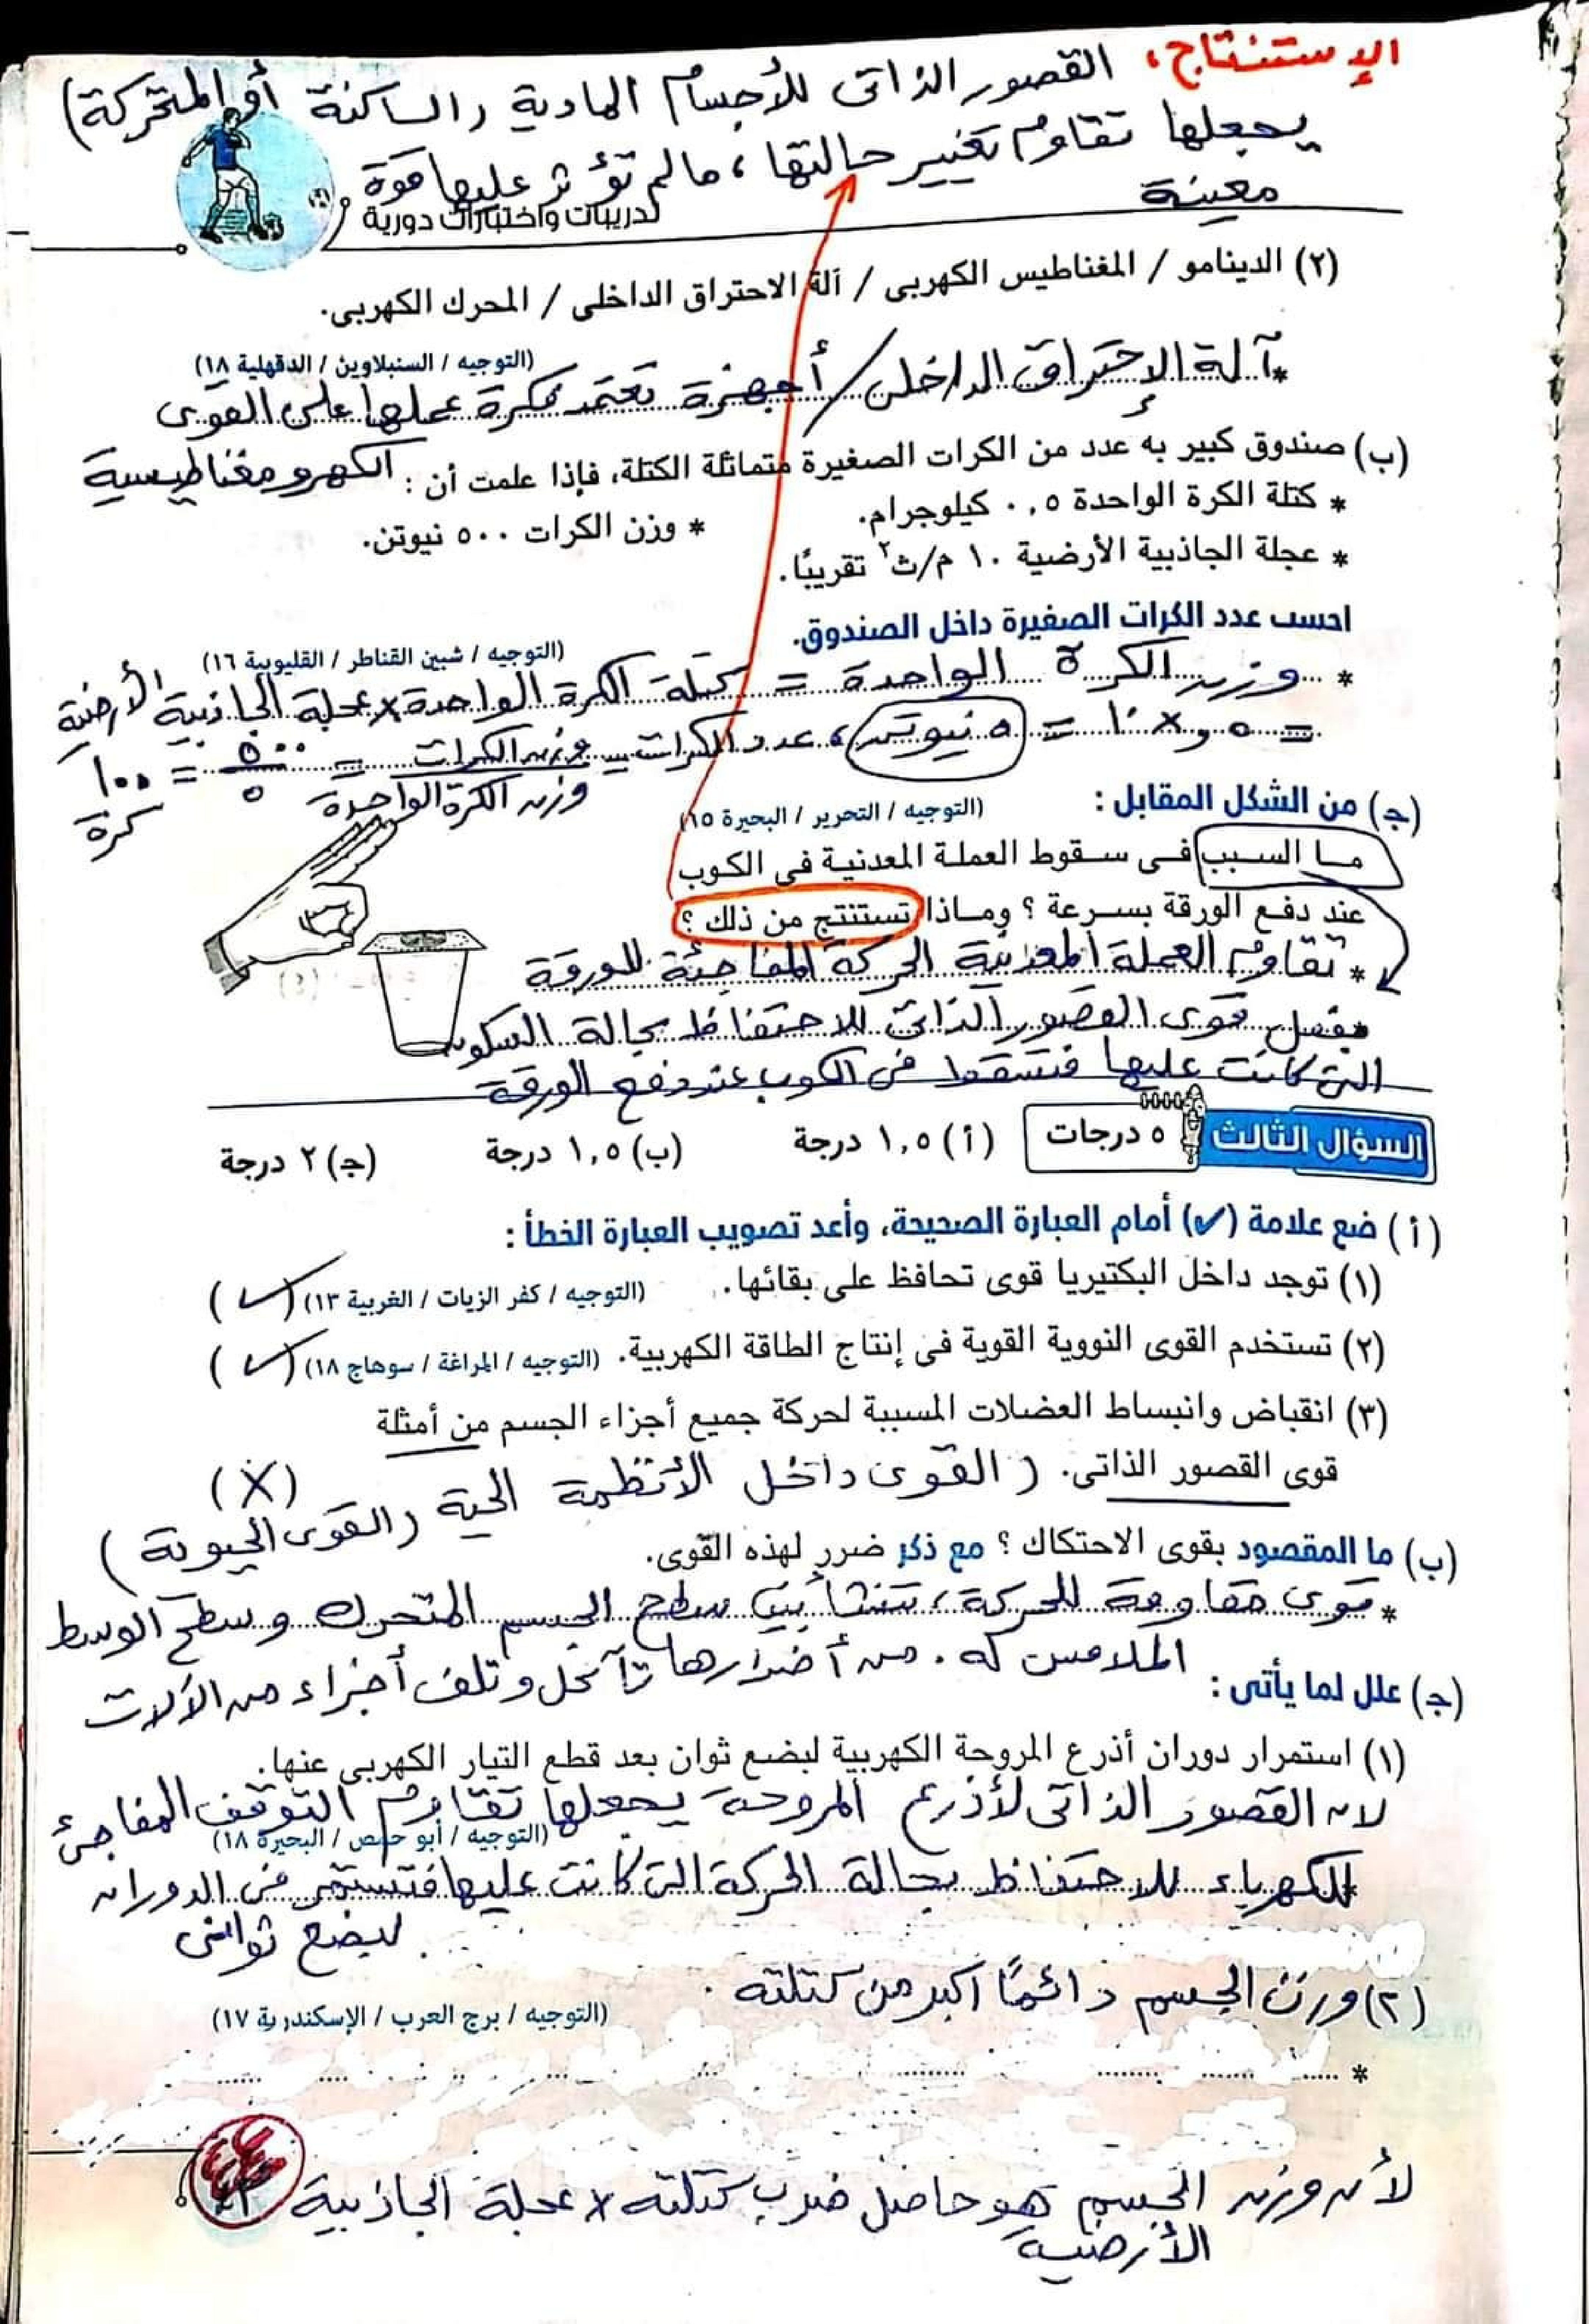 الإستنتاج، القصور الذاتى للأجسام المادية (الساكنة أو المتحركة)
يجعلها تقاوم تغيير حالتها، مالم تؤثر عليها قوة
معينة
تدريبات واختبارات دورية
(٢) الدينامو / المغناطيس الكهربى / آلة الاحتراق الداخلى / المحرك الكهربى.
(التوجيه / السنبلاوين / الدقهلية ١٨)
* آلة الإحتراق الداخلى / أجهزة تعتمد فكرة عملها على القوى
الكهرومغناطيسية
(ب) صندوق كبير به عدد من الكرات الصغيرة متماثلة الكتلة، فإذا علمت أن :
* كتلة الكرة الواحدة ٠,٥ كيلوجرام.
* وزن الكرات ٥٠٠ نيوتن.
* عجلة الجاذبية الأرضية ١٠ م/ث٢ تقريبًا.
احسب عدد الكرات الصغيرة داخل الصندوق.
(التوجيه / شبين القناطر / القليوبية ١٦)
* وزن الكرة الواحدة = كتلة الكرة الواحدة × عجلة الجاذبية الأرضية
= ٠,٥ × ١٠ = ٥ نيوتن، عدد الكرات = وزن الكرات / وزن الكرة الواحدة = ٥٠٠ / ٥ = ١٠٠
كرة
(ج) من الشكل المقابل :
(التوجيه / التحرير / البحيرة ١٥)
ما السبب فى سقوط العملة المعدنية فى الكوب
عند دفع الورقة بسرعة ؟ وماذا تستنتج من ذلك ؟
* تقاوم العملة المعدنية الحركة المفاجئة للورقة
بفعل قوى القصور الذاتى للاحتفاظ بحالة السكون
التى كانت عليها فتسقط فى الكوب عند دفع الورقة
السؤال الثالث
٥ درجات
(أ) ١,٥ درجة
(ب) ١,٥ درجة
(ج) ٢ درجة
(أ) ضع علامة (✓) أمام العبارة الصحيحة، وأعد تصويب العبارة الخطأ :
(١) توجد داخل البكتيريا قوى تحافظ على بقائها. (التوجيه / كفر الزيات / الغربية ١٣) (✓)
(٢) تستخدم القوى النووية القوية فى إنتاج الطاقة الكهربية. (التوجيه / المراغة / سوهاج ١٨) (✓)
(٣) انقباض وانبساط العضلات المسببة لحركة جميع أجزاء الجسم من أمثلة
قوى القصور الذاتى. (القوى داخل الأنظمة الحية (القوى الحيوية) (X)
(ب) ما المقصود بقوى الاحتكاك ؟ مع ذكر ضرر لهذه القوى.
* قوى مقاومة للحركة، تنشأ بين سطح الجسم المتحرك وسطح الوسط
الملامس له. من أضرارها تآكل وتلف أجزاء من الآلات
(ج) علل لما يأتى :
(١) استمرار دوران أذرع المروحة الكهربية لبضع ثوان بعد قطع التيار الكهربى عنها.
لان القصور الذاتى لأذرع المروحة يجعلها تقاوم التوقف المفاجئ
(التوجيه / أبو حمص / البحيرة ١٨)
للكهرباء للاحتفاظ بحالة الحركة التى كانت عليها فتستمر فى الدوران
لبضع ثوانى
(٢) وزن الجسم دائمًا أكبر من كتلته.
(التوجيه / برج العرب / الإسكندرية ١٧)
*
لأن وزن الجسم هو حاصل ضرب كتلته × عجلة الجاذبية
الأرضية